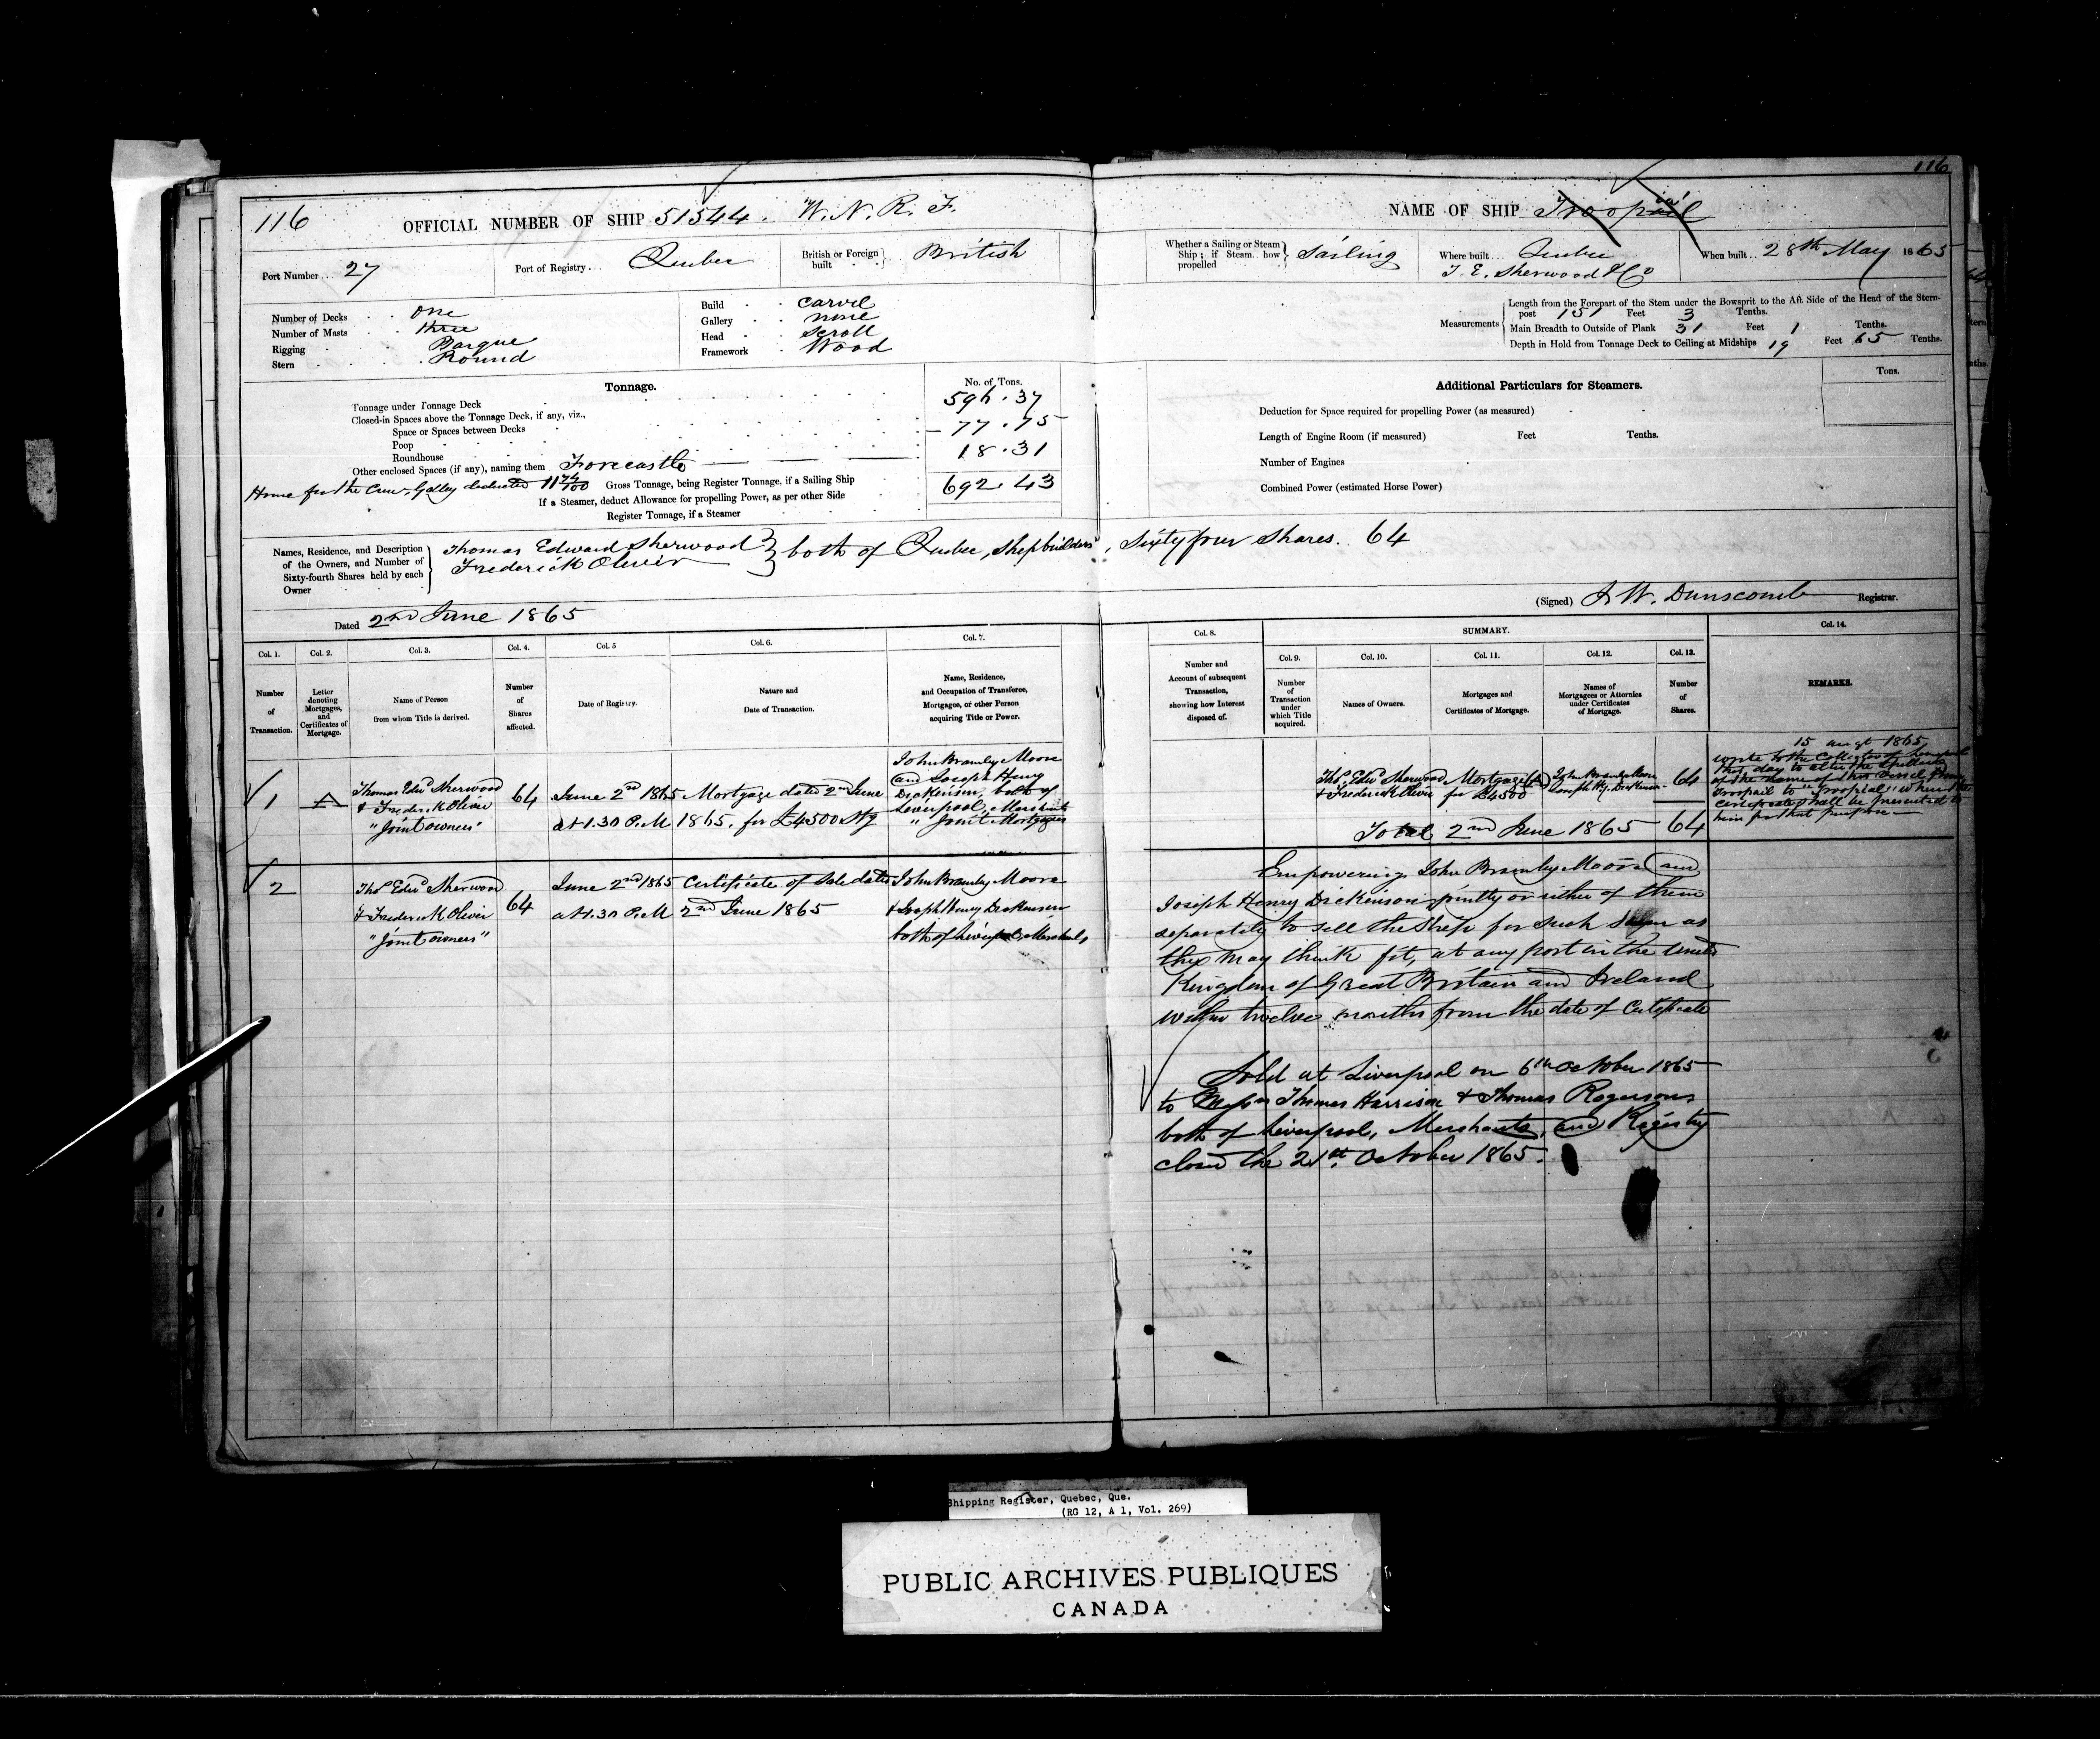 116
116
OFFICIAL NUMBER OF SHIP 51544. W. N. R. F.
NAME OF SHIP Troopail
ia
Port Number... 27
Port of Registry... Quebec
British or Foreign built British
Whether a Sailing or Steam Ship; if Steam how propelled Sailing
Where built Quebec
T. E. Sherwood & Co
When built.. 28th May 1865
Number of Decks One
Number of Masts three
Rigging Barque
Stern Round
Build Carvel
Gallery none
Head Scroll
Framework Wood
Measurements
Length from the Forepart of the Stem under the Bowsprit to the Aft Side of the Head of the Stern-
post 151 Feet 3 Tenths.
Main Breadth to Outside of Plank 31 Feet 1 Tenths.
Depth in Hold from Tonnage Deck to Ceiling at Midships 19 Feet 65 Tenths.
Tonnage.
No. of Tons.
Tonnage under Tonnage Deck 596.37
Closed-in Spaces above the Tonnage Deck, if any, viz.,
Space or Spaces between Decks
Poop 77.75
Roundhouse
Other enclosed Spaces (if any), naming them Forecastle 18.31
House for the Crew. Galley deducted 11
Gross Tonnage, being Register Tonnage, if a Sailing Ship 692.43
If a Steamer, deduct Allowance for propelling Power, as per other Side
Register Tonnage, if a Steamer
Additional Particulars for Steamers.
Tons.
Deduction for Space required for propelling Power (as measured)
Length of Engine Room (if measured) Feet Tenths.
Number of Engines
Combined Power (estimated Horse Power)
Names, Residence, and Description
of the Owners, and Number of
Sixty-fourth Shares held by each
Owner
Thomas Edward Sherwood
Frederick Oliver
both of Quebec, Shipbuilders, Sixty four Shares. 64
Dated 2nd June 1865
(Signed) J. W. Dunscomb Registrar.
Col. 1.
Number
of
Transaction.
Col. 2.
Letter
denoting
Mortgages,
and
Certificates of
Mortgage.
Col. 3.
Name of Person
from whom Title is derived.
Col. 4.
Number
of
Shares
affected.
Col. 5
Date of Registry.
Col. 6.
Nature and
Date of Transaction.
Col. 7.
Name, Residence,
and Occupation of Transferee,
Mortgagee, or other Person
acquiring Title or Power.
Col. 8.
Number and
Account of subsequent
Transaction,
showing how Interest
disposed of.
SUMMARY.
Col. 9.
Number
of
Transaction
under
which Title
acquired.
Col. 10.
Names of Owners.
Col. 11.
Mortgages and
Certificates of Mortgage.
Col. 12.
Names of
Mortgagees or Attornies
under Certificates
of Mortgage.
Col. 13.
Number
of
Shares.
Col. 14.
REMARKS.
1
A
Thomas Edwd Sherwood
& Frederick Oliver
"Joint owners"
64
June 2nd 1865
at 1.30 P.M
Mortgage dated 2nd June
1865. for £4500 Stg
John Bramley Moore
and Joseph Henry
Dickinson, both of
Liverpool, Merchants
"Joint Mortgagees
Thos Edwd Sherwood
& Frederick Oliver
Mortgage (A)
for £4500
John Bramley Moore
Joseph Hy. Dickinson
64
Total 2nd June 1865 64
15 augt 1865
wrote to the Collector of Liverpool
this day to alter the spelling
of the name of this vessel from
Troopail to "Troopial" when the
certificate shall be presented to
him for that purpose
2
Thos Edwd Sherwood
& Frederick Oliver
"Joint owners"
64
June 2nd 1865
at 1.30 P.M
Certificate of Sale dated
2nd June 1865
John Bramley Moore
& Joseph Henry Dickinson
both of Liverpool, Merchants
Empowering John Bramley Moore and
Joseph Henry Dickinson jointly or either of them
separately to sell the Ship for such sum as
they may think fit, at any port in the United
Kingdom of Great Britain and Ireland
within twelve months from the date of Certificate
Sold at Liverpool on 6th October 1865
to Messrs Thomas Harrison & Thomas Rogerson
both of Liverpool, Merchants, and Registry
closed the 21st. October 1865.
Shipping Register, Quebec, Que.
(RG 12, A 1, Vol. 269)
PUBLIC ARCHIVES PUBLIQUES
CANADA